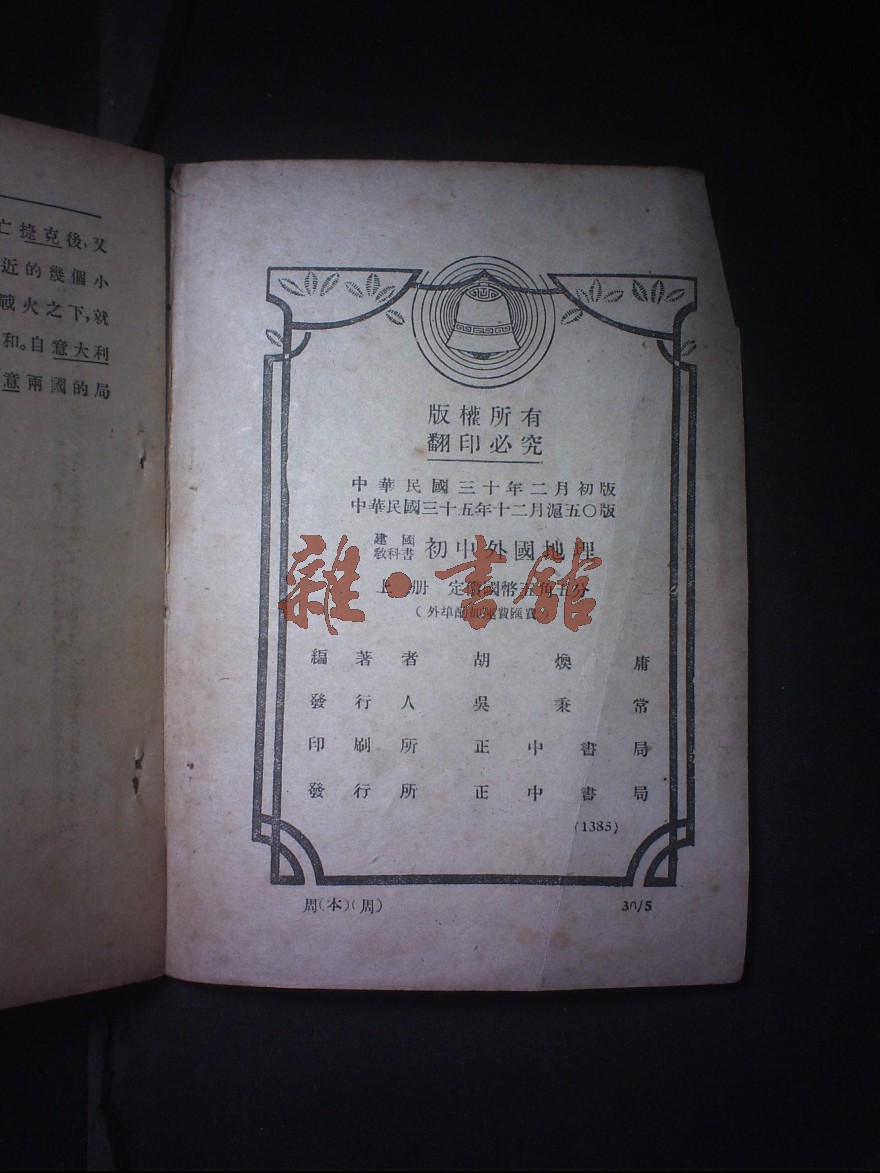 亡捷克後,又
近的幾個小
戰火之下,就
和。自意大利
意兩國的局
版權所有
翻印必究
中華民國三十年二月初版
中華民國三十五年十二月滬五〇版
建國
教科書
初中外國地理
上册 定價國幣五角五分
(外埠酌加運費匯費)
編著者 胡煥庸
發行人 吳秉常
印刷所 正中書局
發行所 正中書局
(1385)
周(本)(周)
30/5
雜·書館